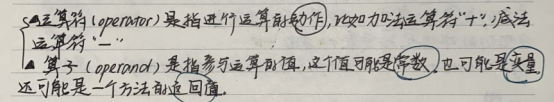 ▲运算符(operator)是指进行运算的动作,比如加法运算符"+",减法
运算符"-"
▲算子(operand)是指参与运算的值,这个值可能是常数,也可能是变量,
还可能是一个方法的返回值.